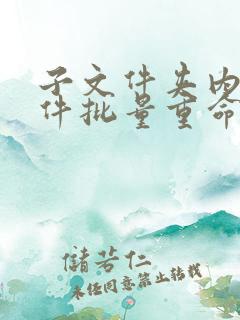 子文件夹内
件批量重命
儲若仁
未经同意禁止转载